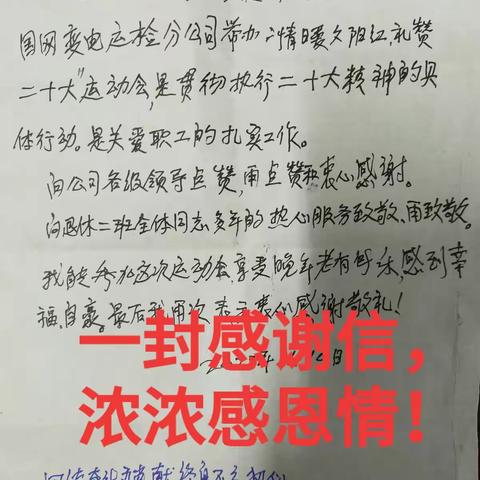 国网变电运检分公司举办“情暖夕阳红,礼赞
二十大”运动会,是贯彻执行二十大精神的具
体行动。是关爱职工的扎实工作。
向公司各级领导点赞,再点赞和衷心感谢。
向退休二班全体同志多年的热心服务致敬、再致敬。
我能参加这次运动会,享受晚年老有所乐,感到幸
福、自豪。最后我再次表示衷心感谢敬礼!
日
一封感谢信,
浓浓感恩情!